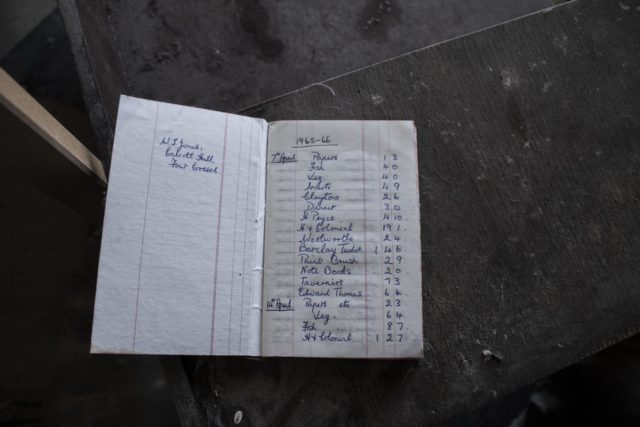 W J Jones,
Calcott Hall,
Four Crosses
1965-66
7th April Papers 1 3
Fish 4 0
Veg. 4 0
4 9
Claytons 2 6
3 0
H Pryce 4 10.
H & Colonial 19 1.
Woolworths 2 4
Barclay 1 4 6
Paint Brush 2 9
Note Books 2 0
Taverners 7 3
Edward Thomas 6 4
14th April Papers etc 2 3.
Veg. 6 4
Fish. 8 7.
H & Colonial 1 2 7.